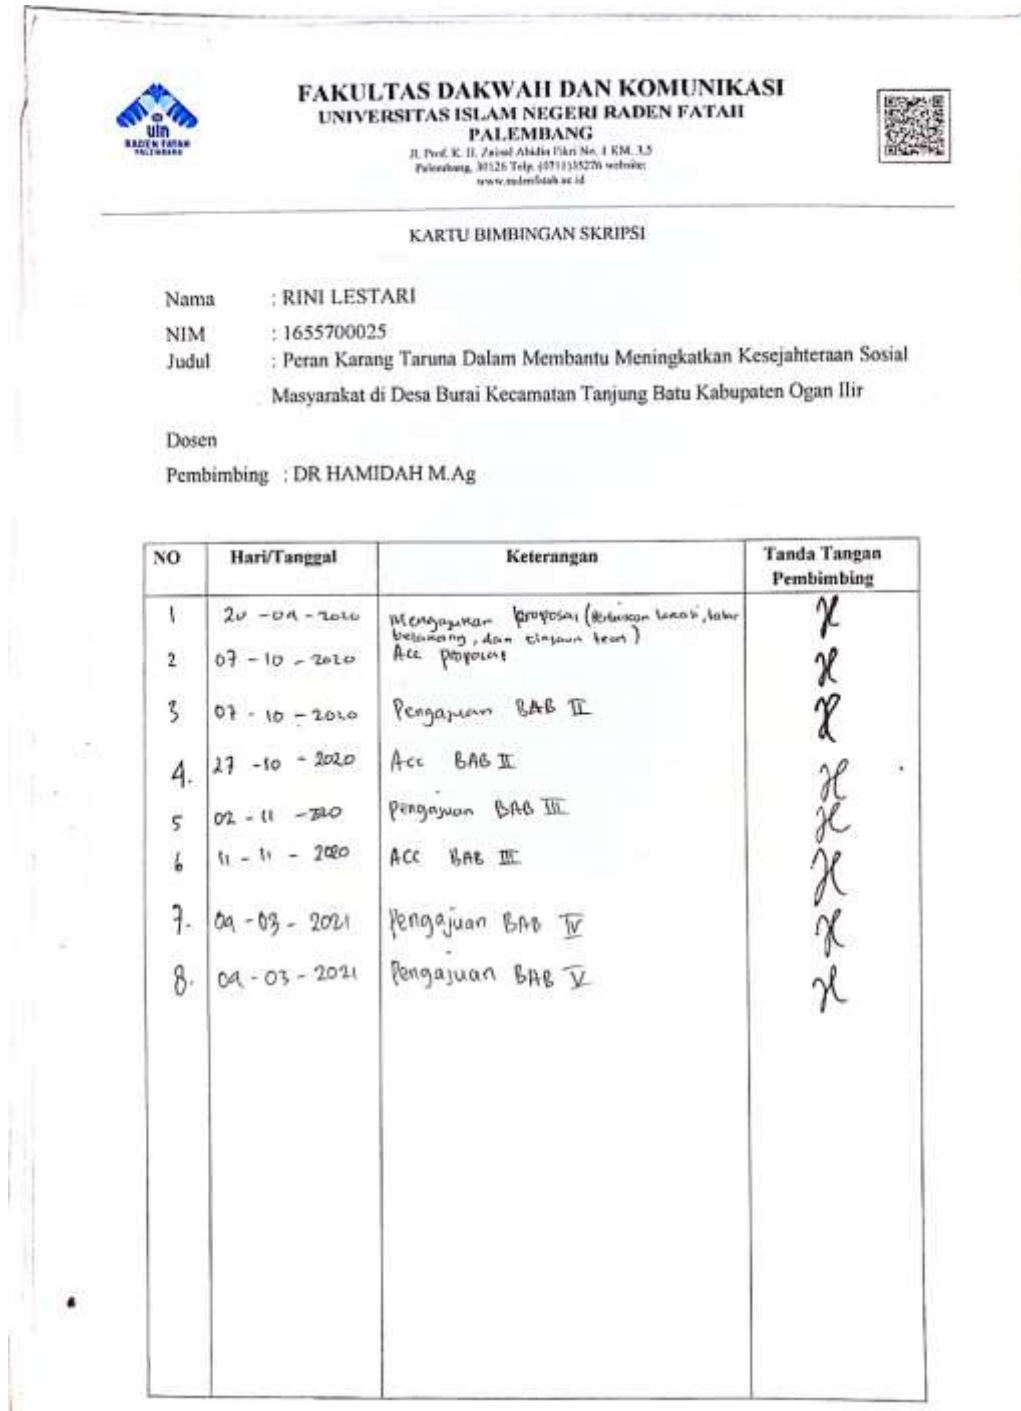 uin
RADEN FATAH
PALEMBANG
FAKULTAS DAKWAH DAN KOMUNIKASI
UNIVERSITAS ISLAM NEGERI RADEN FATAH
PALEMBANG
Jl. Prof. K. H. Zainal Abidin Fikri No. 1 KM. 3,5
Palembang, 30126 Telp. (0711)35276 website:
www.radenfatah.ac.id
KARTU BIMBINGAN SKRIPSI
Nama : RINI LESTARI
NIM : 1655700025
Judul : Peran Karang Taruna Dalam Membantu Meningkatkan Kesejahteraan Sosial
Masyarakat di Desa Burai Kecamatan Tanjung Batu Kabupaten Ogan Ilir
Dosen
Pembimbing : DR HAMIDAH M.Ag
NO Hari/Tanggal Keterangan Tanda Tangan
Pembimbing
1 20 - 09 - 2020 Mengajukan proposal ( lokasi, latar
belakang, dan tinjaun teori)
2 07 - 10 - 2020 Acc proposal
3 07 - 10 - 2020 Pengajuan BAB II
4. 27 - 10 - 2020 Acc BAB II
5 02 - 11 - 2020 Pengajuan BAB III
6 11 - 11 - 2020 ACC BAB III
7. 09 - 03 - 2021 Pengajuan BAB IV
8. 09 - 03 - 2021 Pengajuan BAB V